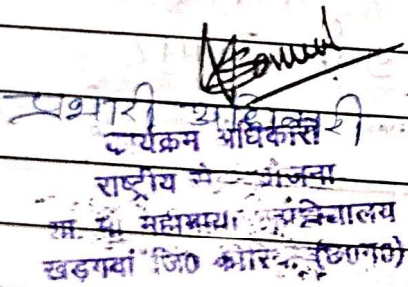 प्रभारी अधिकारी
कार्यक्रम अधिकारी
राष्ट्रीय से योजना
शा. महामाया महाविद्यालय
खड़गवां जि0 कोरि (छ0ग0)